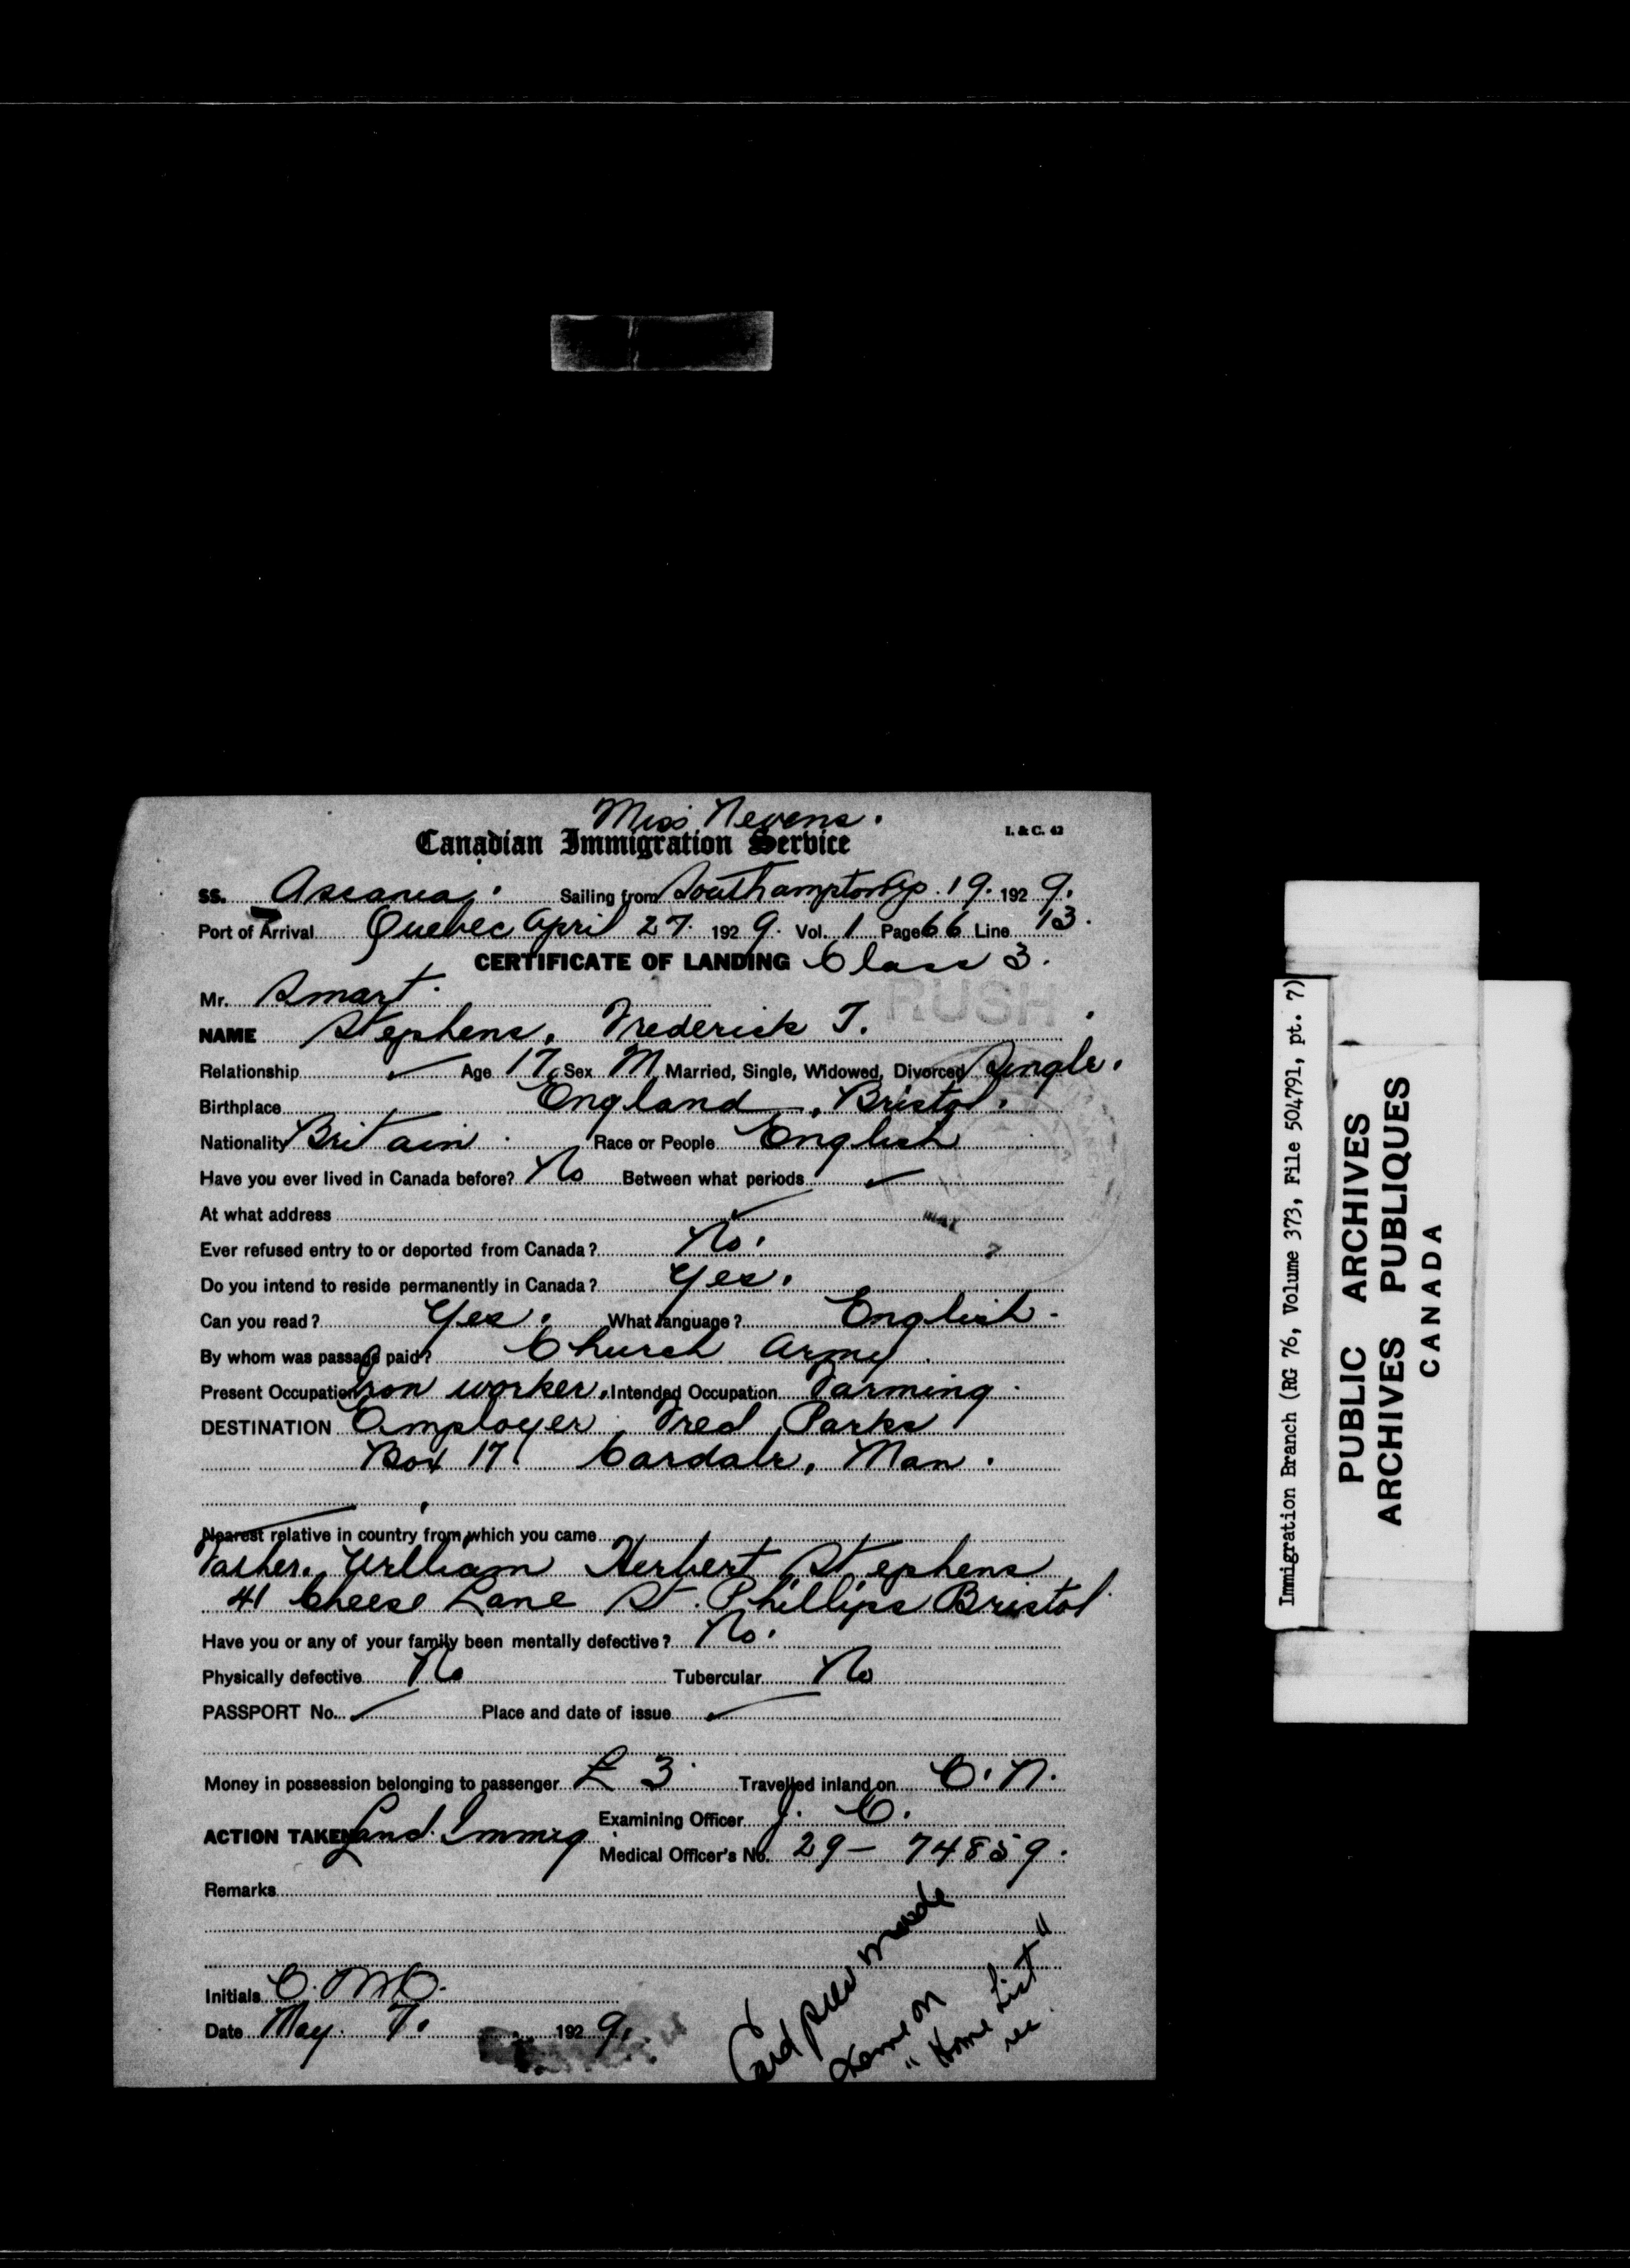 Miss Nevens.
Canadian Immigration Service I. & C. 42
SS. Ascania. Sailing from Southampton Ap. 19. 1929.
Port of Arrival Quebec April 27. 1929. Vol. 1 Page 66 Line 13.
CERTIFICATE OF LANDING Class 3.
Mr. Smart.
RUSH
NAME Stephens, Frederick T.
Relationship ✓ Age 17 Sex M Married, Single, Widowed, Divorced Single.
Birthplace England, Bristol.
Nationality Britain. Race or People English
Have you ever lived in Canada before? No Between what periods ✓
At what address ✓
Ever refused entry to or deported from Canada? No.
Do you intend to reside permanently in Canada? Yes.
Can you read? Yes. What language? English.
By whom was passage paid? Church Army.
Present Occupation Iron worker. Intended Occupation Farming.
DESTINATION Employer Fred Parks
Box 17. Cardale, Man.
Nearest relative in country from which you came
Father. William Herbert Stephens
41 Cheese Lane St. Phillips Bristol.
Have you or any of your family been mentally defective? No.
Physically defective No Tubercular No
PASSPORT No. ✓ Place and date of issue ✓
Money in possession belonging to passenger £ 3. Travelled inland on C. N.
Examining Officer J. C.
ACTION TAKEN Land. Immig.
Medical Officer's No. 29 - 74859.
Remarks
Initials C. M
Date May. 7. 1929.
Card made
name on
"Home List"
Immigration Branch (RG 76, Volume 373, File 504791, pt. 7)
PUBLIC ARCHIVES
ARCHIVES PUBLIQUES
CANADA